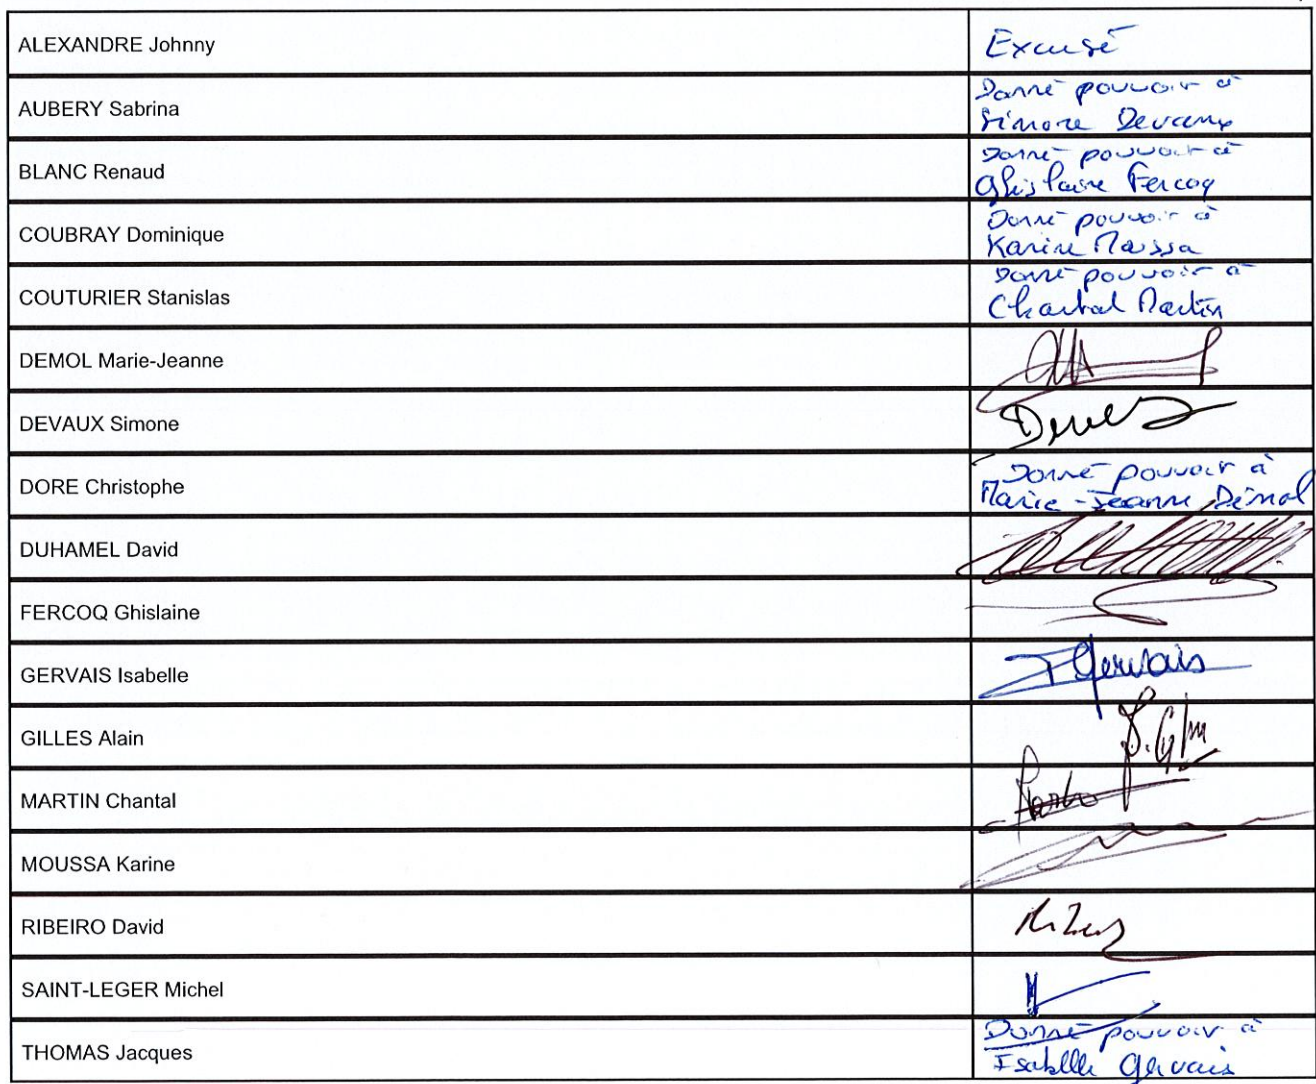 ALEXANDRE Johnny
Excusé
AUBERY Sabrina
Donné pouvoir à
Simone Devaux
BLANC Renaud
Donné pouvoir à
Ghislaine Fercoq
COUBRAY Dominique
Donné pouvoir à
Karine Moussa
COUTURIER Stanislas
Donné pouvoir à
Chantal Martin
DEMOL Marie-Jeanne
DEVAUX Simone
DORE Christophe
Donné pouvoir à
Marie-Jeanne Démol
DUHAMEL David
FERCOQ Ghislaine
GERVAIS Isabelle
I Gervais
GILLES Alain
MARTIN Chantal
MOUSSA Karine
RIBEIRO David
SAINT-LEGER Michel
THOMAS Jacques
Donné pouvoir à
Isabelle Gervais